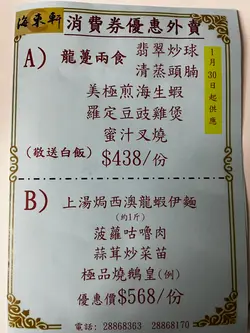 海來軒 消費券優惠外賣
1月30日起供應
A) 龍蓬兩食 翡翠炒球
清蒸頭腩
美極煎海生蝦
羅定豆豉雞煲
蜜汁叉燒
(敬送白飯) $438/份
B) 上湯焗西澳龍蝦伊麵
(約1斤)
菠蘿咕嚕肉
蒜茸炒菜苗
極品燒鵝皇(例)
優惠價$568/份
電話: 28868363 28868170